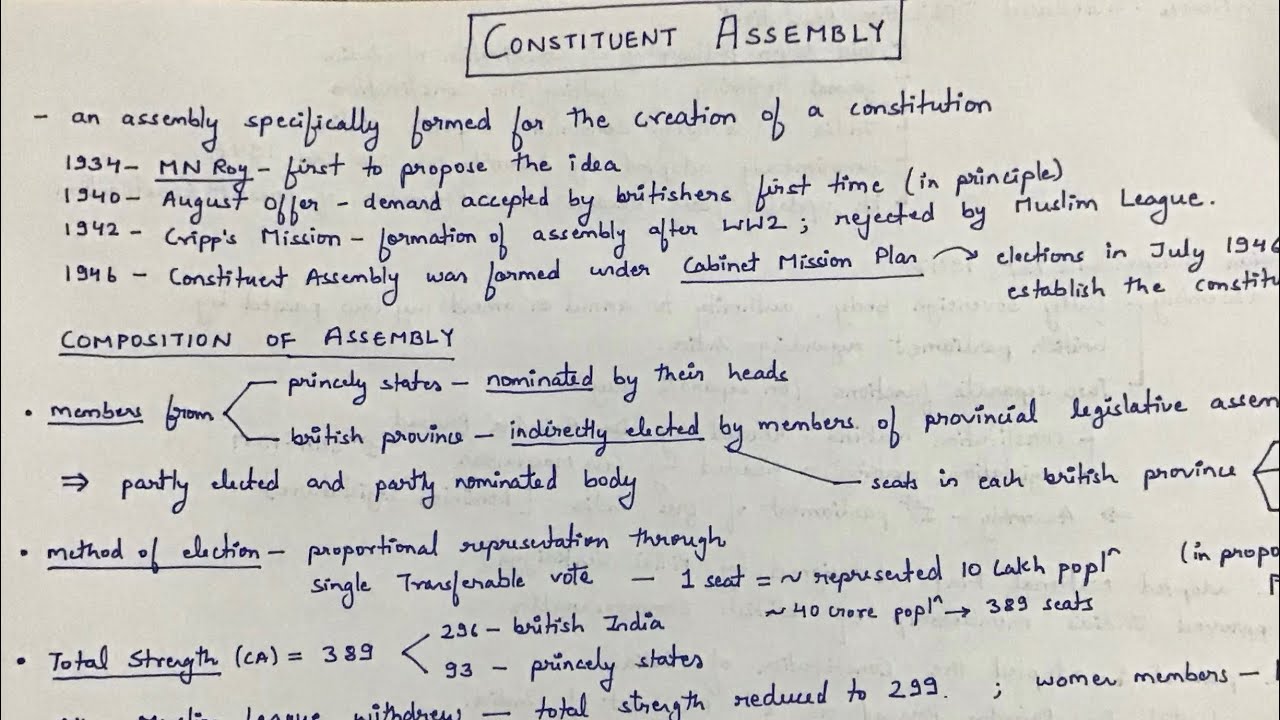 CONSTITUENT ASSEMBLY
- an assembly specifically formed for the creation of a constitution
1934 - MN Roy - first to propose the idea
1940 - August Offer - demand accepted by britishers first time (in principle)
1942 - Cripp's Mission - formation of assembly after WW2 ; rejected by Muslim League.
1946 - Constituent Assembly was formed under Cabinet Mission Plan → elections in July 1946
establish the constitu
COMPOSITION OF ASSEMBLY
princely states - nominated by their heads
• members from
british province - indirectly elected by members of provincial legislative assem
⇒ partly elected and partly nominated body
seats in each british province
• method of election - proportional representation through
single Transferable vote - 1 seat = ~ represented 10 Lakh popl^n (in propo
~ 40 crore popl^n → 389 seats
296 - british India
• Total Strength (CA) = 389
93 - princely states
Muslim League withdrew - total strength reduced to 299. ; women members -